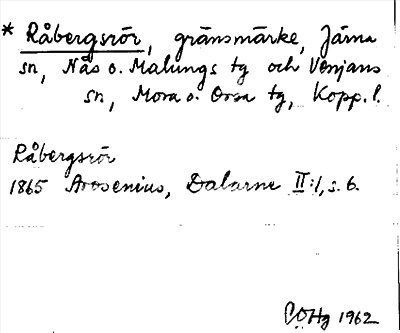 * Råbergsrör, gränsmärke, Järna
sn, Nås o. Malungs tg och Venjans
sn, Mora o. Orsa tg, Kopp. l.
Råbergsrör
1865 Arosenius, Dalarne II:1, s. 6.
1962